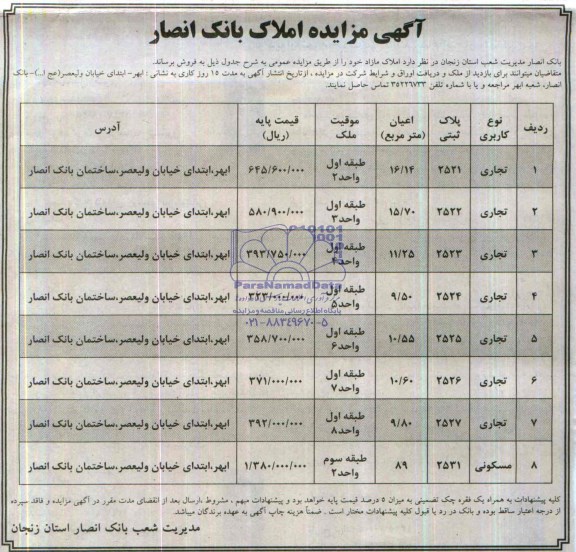 آگهی مزایده املاک بانک انصار
بانک انصار مدیریت شعب استان زنجان در نظر دارد املاک مازاد خود را از طریق مزایده عمومی به شرح جدول ذیل به فروش برساند.
متقاضیان میتوانند برای بازدید از ملک و دریافت اوراق و شرایط شرکت در مزایده ، ازتاریخ انتشار آگهی به مدت ۱۵ روز کاری به نشانی : ابهر- ابتدای خیابان ولیعصر(عج ا..)- بانک
انصار، شعبه ابهر مراجعه و یا با شماره تلفن ۳۵۲۲۶۷۳۳ تماس حاصل نمایند.
ردیف نوع کاربری پلاک ثبتی اعیان (متر مربع) موقیت ملک قیمت پایه (ریال) آدرس
۱ تجاری ۲۵۲۱ ۱۶/۱۴ طبقه اول واحد۲ ۶۴۵/۶۰۰/۰۰۰ ابهر،ابتدای خیابان ولیعصر،ساختمان بانک انصار
۲ تجاری ۲۵۲۲ ۱۵/۷۰ طبقه اول واحد۳ ۵۸۰/۹۰۰/۰۰۰ ابهر،ابتدای خیابان ولیعصر،ساختمان بانک انصار
۳ تجاری ۲۵۲۳ ۱۱/۲۵ طبقه اول واحد۴ ۳۹۳/۷۵۰/۰۰۰ ابهر،ابتدای خیابان ولیعصر،ساختمان بانک انصار
۴ تجاری ۲۵۲۴ ۹/۵۰ طبقه اول واحد۵ ابهر،ابتدای خیابان ولیعصر،ساختمان بانک انصار
۵ تجاری ۲۵۲۵ ۱۰/۵۵ طبقه اول واحد۶ ۳۵۸/۷۰۰/۰۰۰ ابهر،ابتدای خیابان ولیعصر،ساختمان بانک انصار
۶ تجاری ۲۵۲۶ ۱۰/۶۰ طبقه اول واحد۷ ۳۷۱/۰۰۰/۰۰۰ ابهر،ابتدای خیابان ولیعصر،ساختمان بانک انصار
۷ تجاری ۲۵۲۷ ۹/۸۰ طبقه اول واحد۸ ۳۹۲/۰۰۰/۰۰۰ ابهر،ابتدای خیابان ولیعصر،ساختمان بانک انصار
۸ مسکونی ۲۵۳۱ ۸۹ طبقه سوم واحد۲ ۱/۳۸۰/۰۰۰/۰۰۰ ابهر،ابتدای خیابان ولیعصر،ساختمان بانک انصار
ParsNamadData
پایگاه اطلاع رسانی مناقصه و مزایده
۰۲۱-۸۸۳۴۹۶۷۰-۵
کلیه پیشنهادات به همراه یک فقره چک تضمینی به میزان ۵ درصد قیمت پایه خواهد بود و پیشنهادات مبهم ، مشروط ،ارسال بعد از انقضای مدت مقرر در آگهی مزایده و فاقد سپرده
از درجه اعتبار ساقط بوده و بانک در رد یا قبول کلیه پیشنهادات مختار است . ضمناً هزینه چاپ آگهی به عهده برندگان میباشد.
مدیریت شعب بانک انصار استان زنجان